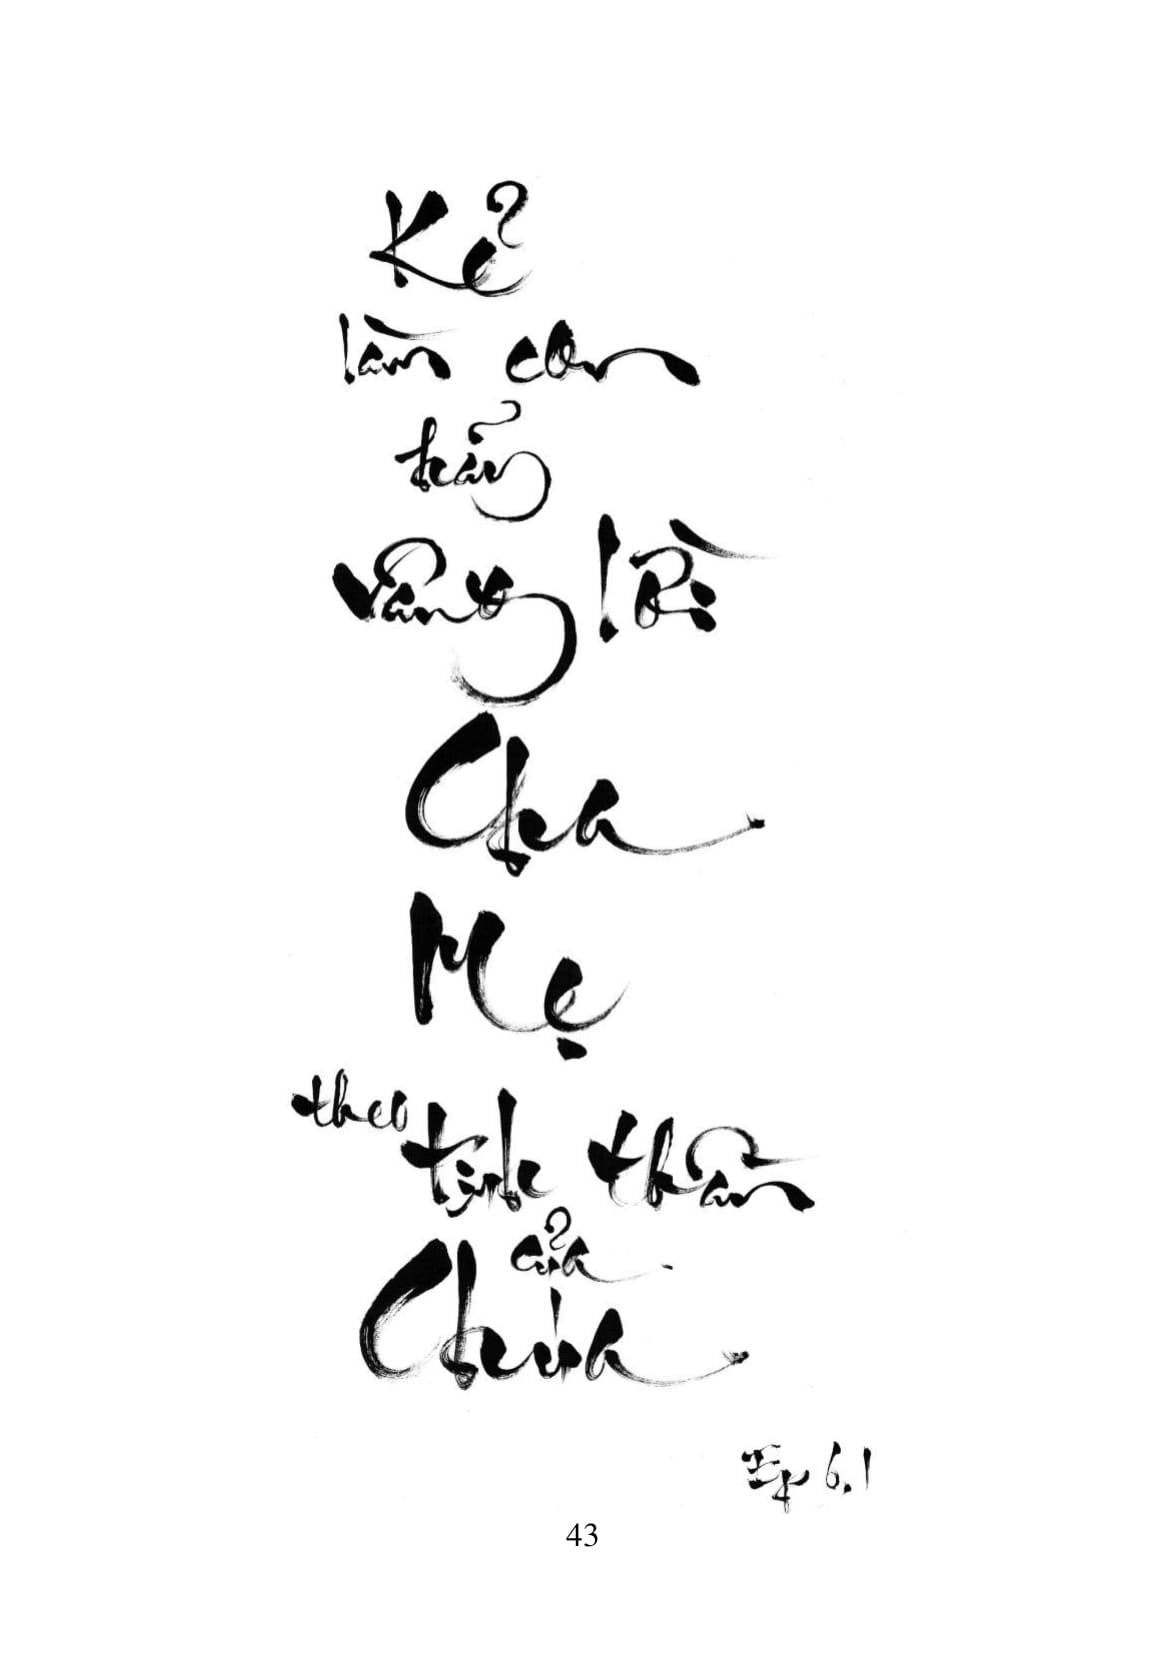 Kẻ
làm con
hãy
vâng lời
Cha
Mẹ
theo tinh thần
của
Chúa
Ep 6,1
43